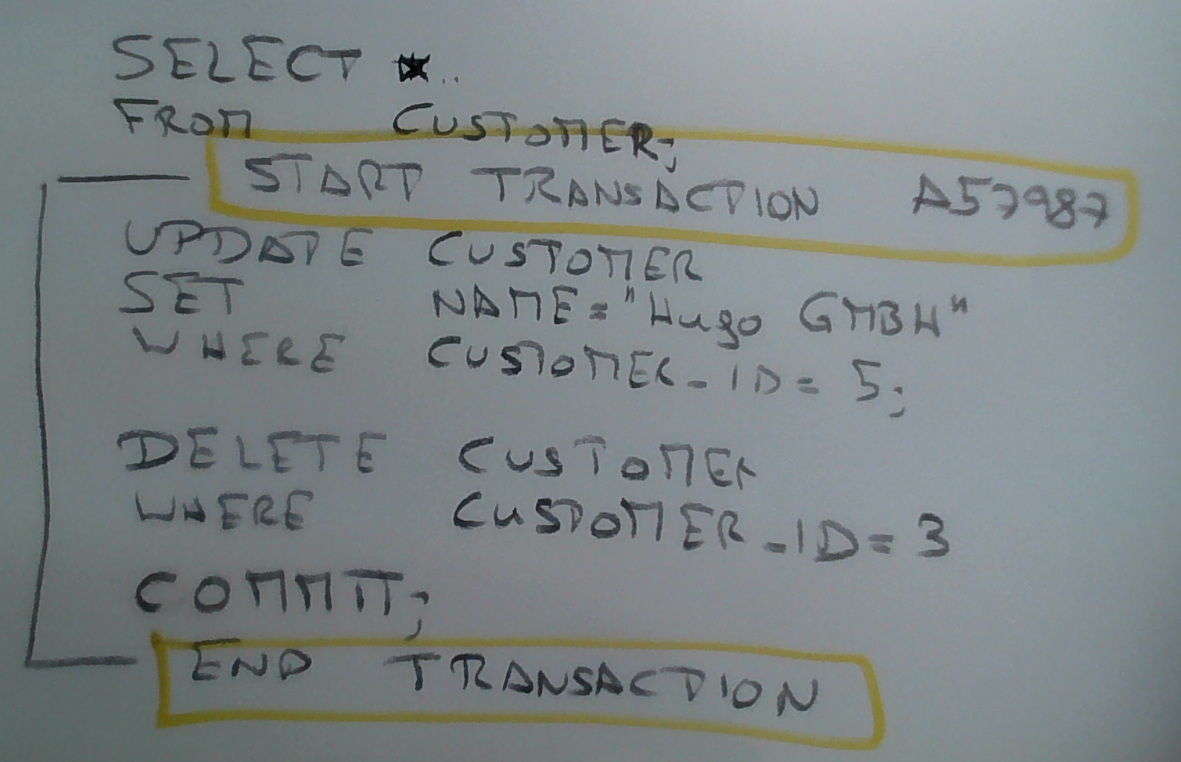 SELECT *..
FROM CUSTOMER;
START TRANSACTION A57987
UPDATE CUSTOMER
SET NAME="Hugo GMBH"
WHERE CUSTOMER_ID= 5;
DELETE CUSTOMER
WHERE CUSTOMER_ID= 3
COMMIT;
END TRANSACTION